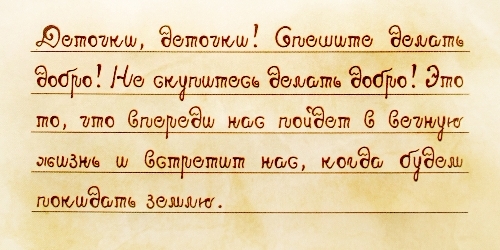 Деточки, деточки! Спешите делать
добро! Не скупитесь делать добро! Это
то, что впереди нас пойдет в вечную
жизнь и встретит нас, когда будем
покидать землю.